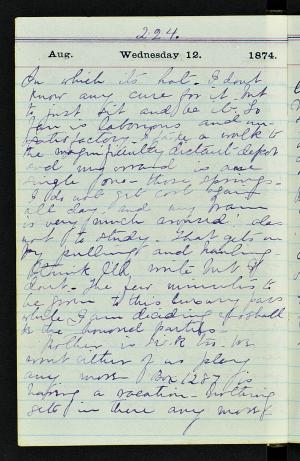 224.
Aug. Wednesday 12. 1874.
In which its hot. I don't
know any cure for it but
to just sit and be it. To
fan is laborious and un-
satisfactory. I take a walk to
the magnificently distant depot
and my errand is a
single one - those springs.
I do not get cool again
all day and my brain
is very much
not to study. That gets on
by pulling and hauling
I think I'll write but I
don't. The few minutes to
be given to this luxury pass
while I am deciding who shall
be the honored parties.
Mother is
wont either of us play
any more. Box 1287 is
having a vacation. Nothing
gets in there any more.